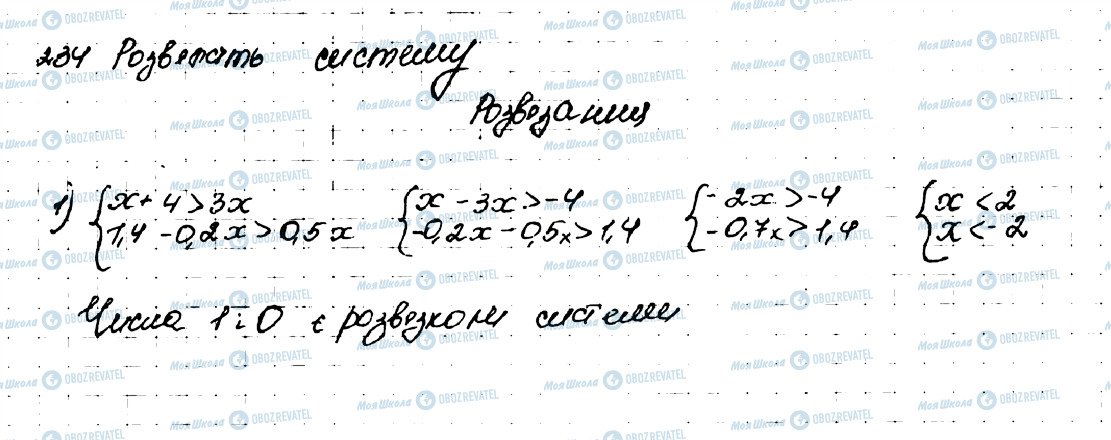 234 Розвезать систему
Розвезання
1) { x + 4 > 3x { x - 3x > -4 { -2x > -4 { x < 2
{ 1,4 - 0,2x > 0,5x { -0,2x - 0,5x > 1,4 { -0,7x > 1,4 { x < -2
Числа 1 і 0 є розвезком системи
Моя Школа OBOZREVATEL